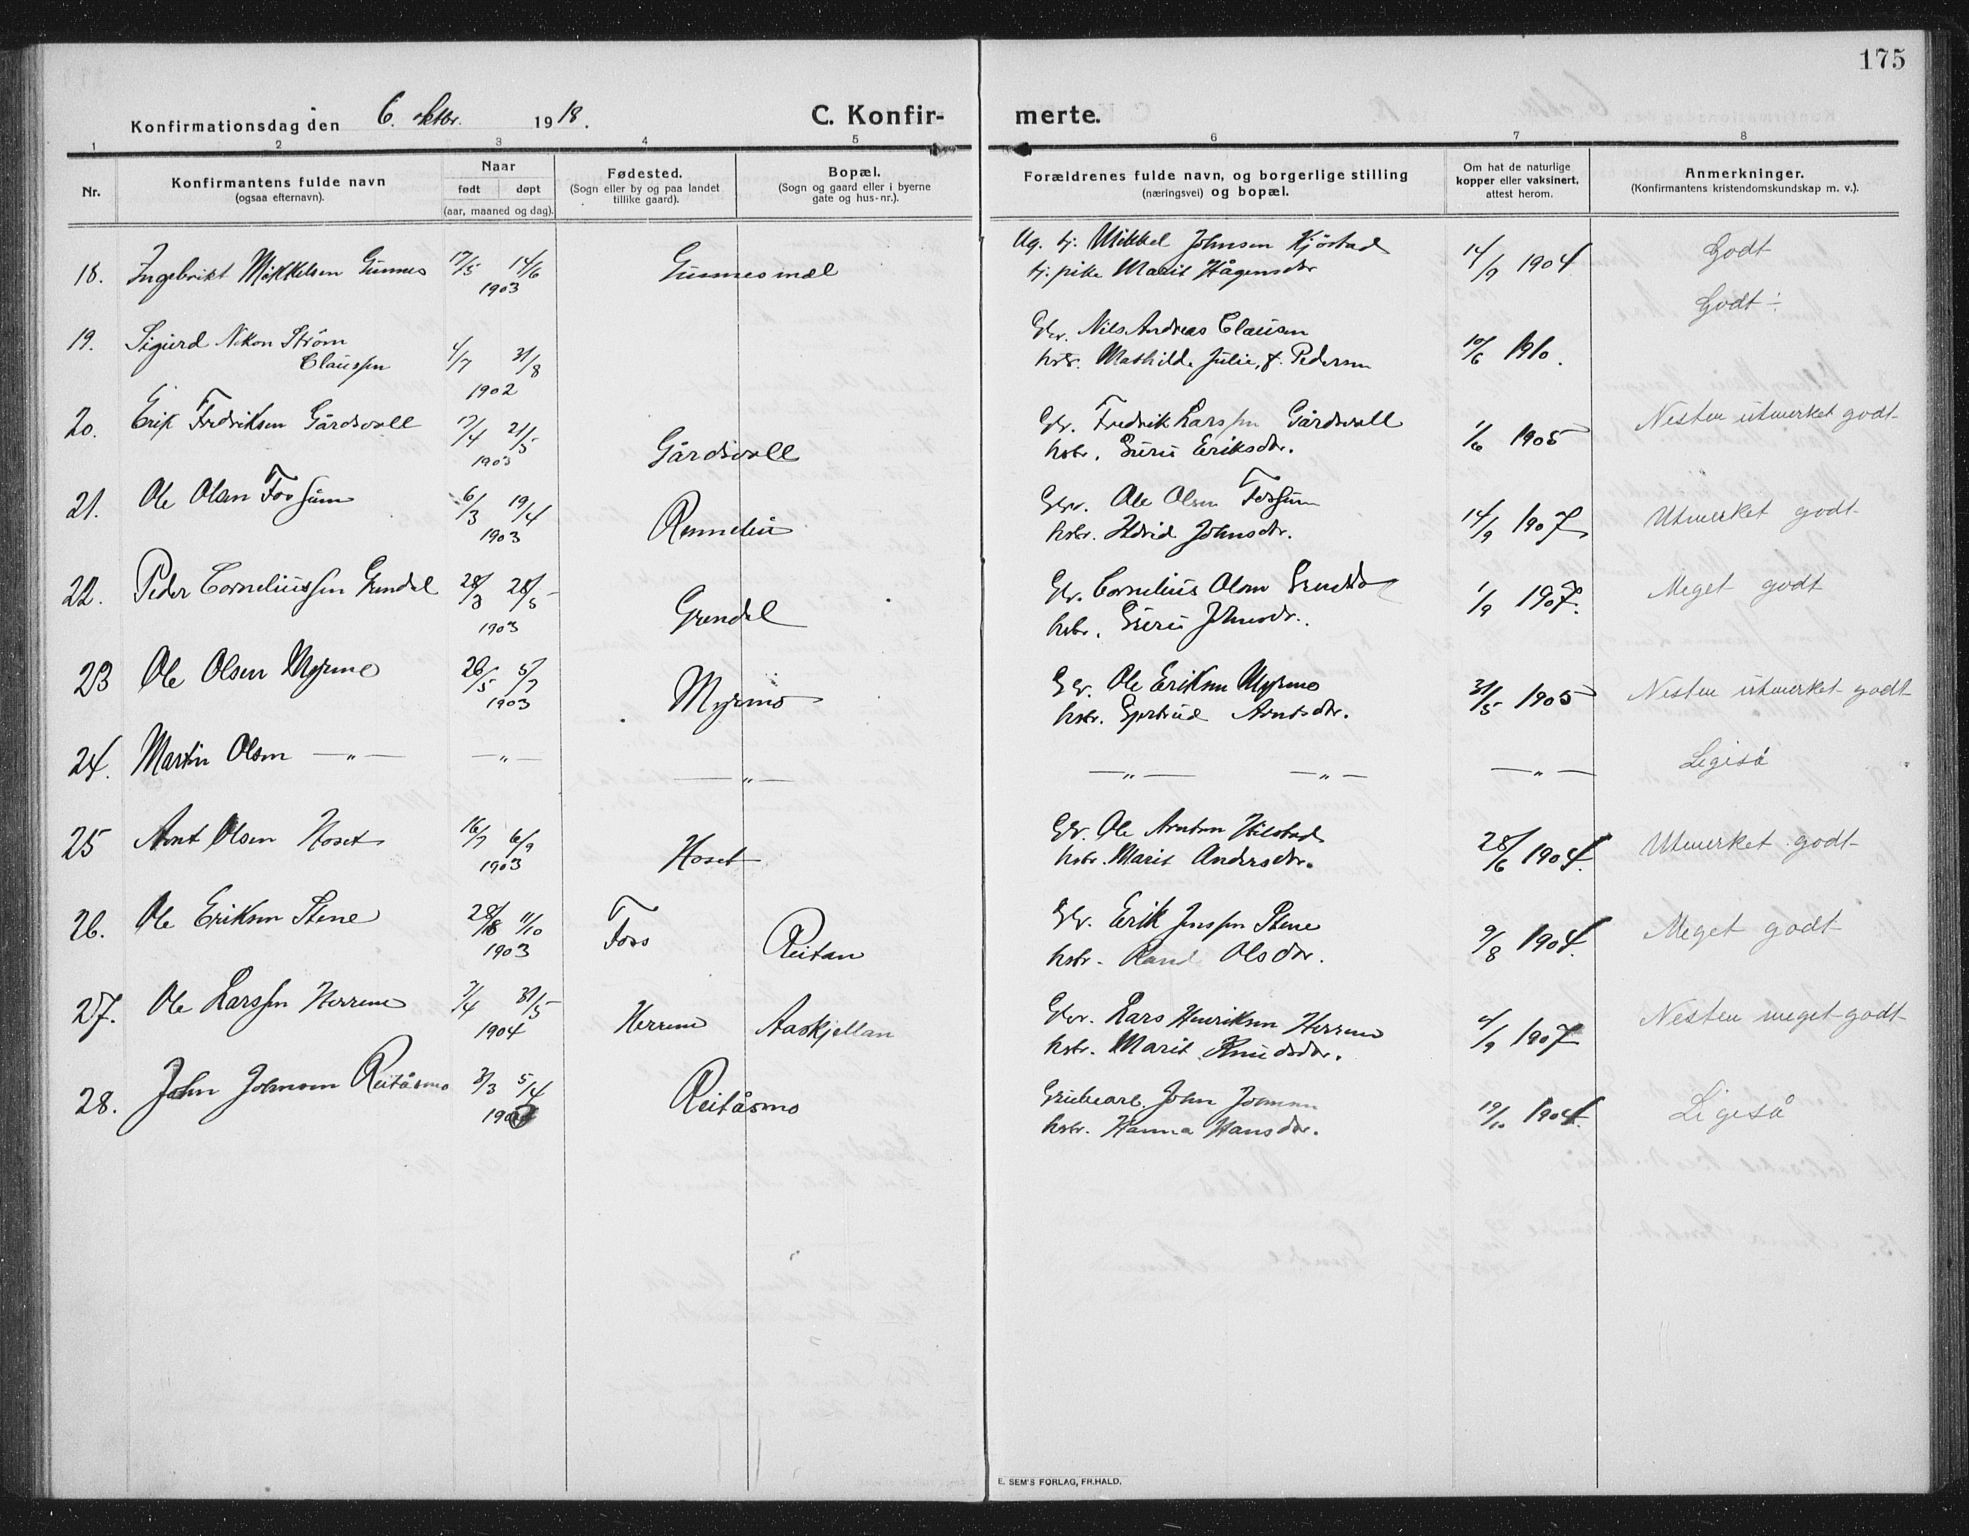 175
Konfirmationsdag den 6. oktbr. 1918.
C. Konfirmerte.
1 2 3 4 5 6 7 8
Nr.
Konfirmantens fulde navn
(ogsaa efternavn).
Naar
født døpt
(aar, maaned og dag).
Fødested.
(Sogn eller by og paa landet
tillike gaard).
Bopæl.
(Sogn og gaard eller i byerne
gate og hus-nr.).
Forældrenes fulde navn, og borgerlige stilling
(næringsvei) og bopæl.
Om hat de naturlige
kopper eller vaksinert,
attest herom.
Anmerkninger.
(Konfirmantens kristendomskundskap m. v.).
18. Ingebrikt Mikkelsen Gunnes 17/5 14/6 1903 Gunnesmæl
Ug. tj. Mikkel Johnsen Kjöstad
tj. pike Marit Hågensdr 14/9 1904 Godt
19. Sigurd Nikon Strøm
Claussen 4/7 31/8 1902
Gbr. Nils Andreas Clausen
hstr. Mathilde Julie, f. Pedersen 10/6 1910. Godt ÷
20. Erik Fredriksen Gårdsvoll 17/4 21/5 1903 Gårdsvoll
Gbr. Fredrik Larssen Gårdsvoll
hstr. Guru Eriksdr. 1/6 1905 Nesten utmerket godt
21. Ole Olsen Fossum 6/3 19/4 1903
Gbr. Ole Olsen Fossum
hstr. Johnsdr. 14/9 1907 Utmerket godt
22. Peder Corneliussen Grendal 28/3 28/5 1903 Grendal
Gbr. Cornelius Olsen
hstr. Guru Johnsdr. 1/9 1907. Meget godt
23 Ole Olsen Myrmo 26/5 5/7 1903 Myrmo
Gbr. Ole Eriksen Myrmo
hstr. Gjertrud Arntsdr. 31/5 1905 Nesten utmerket godt
24. Martin Olsen — „ — — „ — — „ —
— „ — — „ — — „ — Ligeså
25 Arnt Olsen Hoset 16/7 6/9 1903 Hoset
Gbr. Ole Arntsen Hilstad
hstr. Marit Andersdr. 28/6 1904. Utmerket godt
26. Ole Eriksen Stene 28/8 11/10 1903 Foss Reitan
Gbr. Erik Jenssen Stene
hstr. Rand Olsdr. 9/8 1904. Meget godt
27. Ole Larssen Herrem 7/4 31/5 1904 Herrem Aaskjellan
Gbr. Lars Henriksen Herrem
hstr. Marit Knudsdr. 4/9 1907 Nesten meget godt
28. John Johnsen Reitåsmo 31/3 5/4 Reitåsmo
Grubearb. John Johnsen
hstr. Hanna Hansdr. 19/10 1904. Ligeså
E. SEM'S FORLAG, FR.HALD.